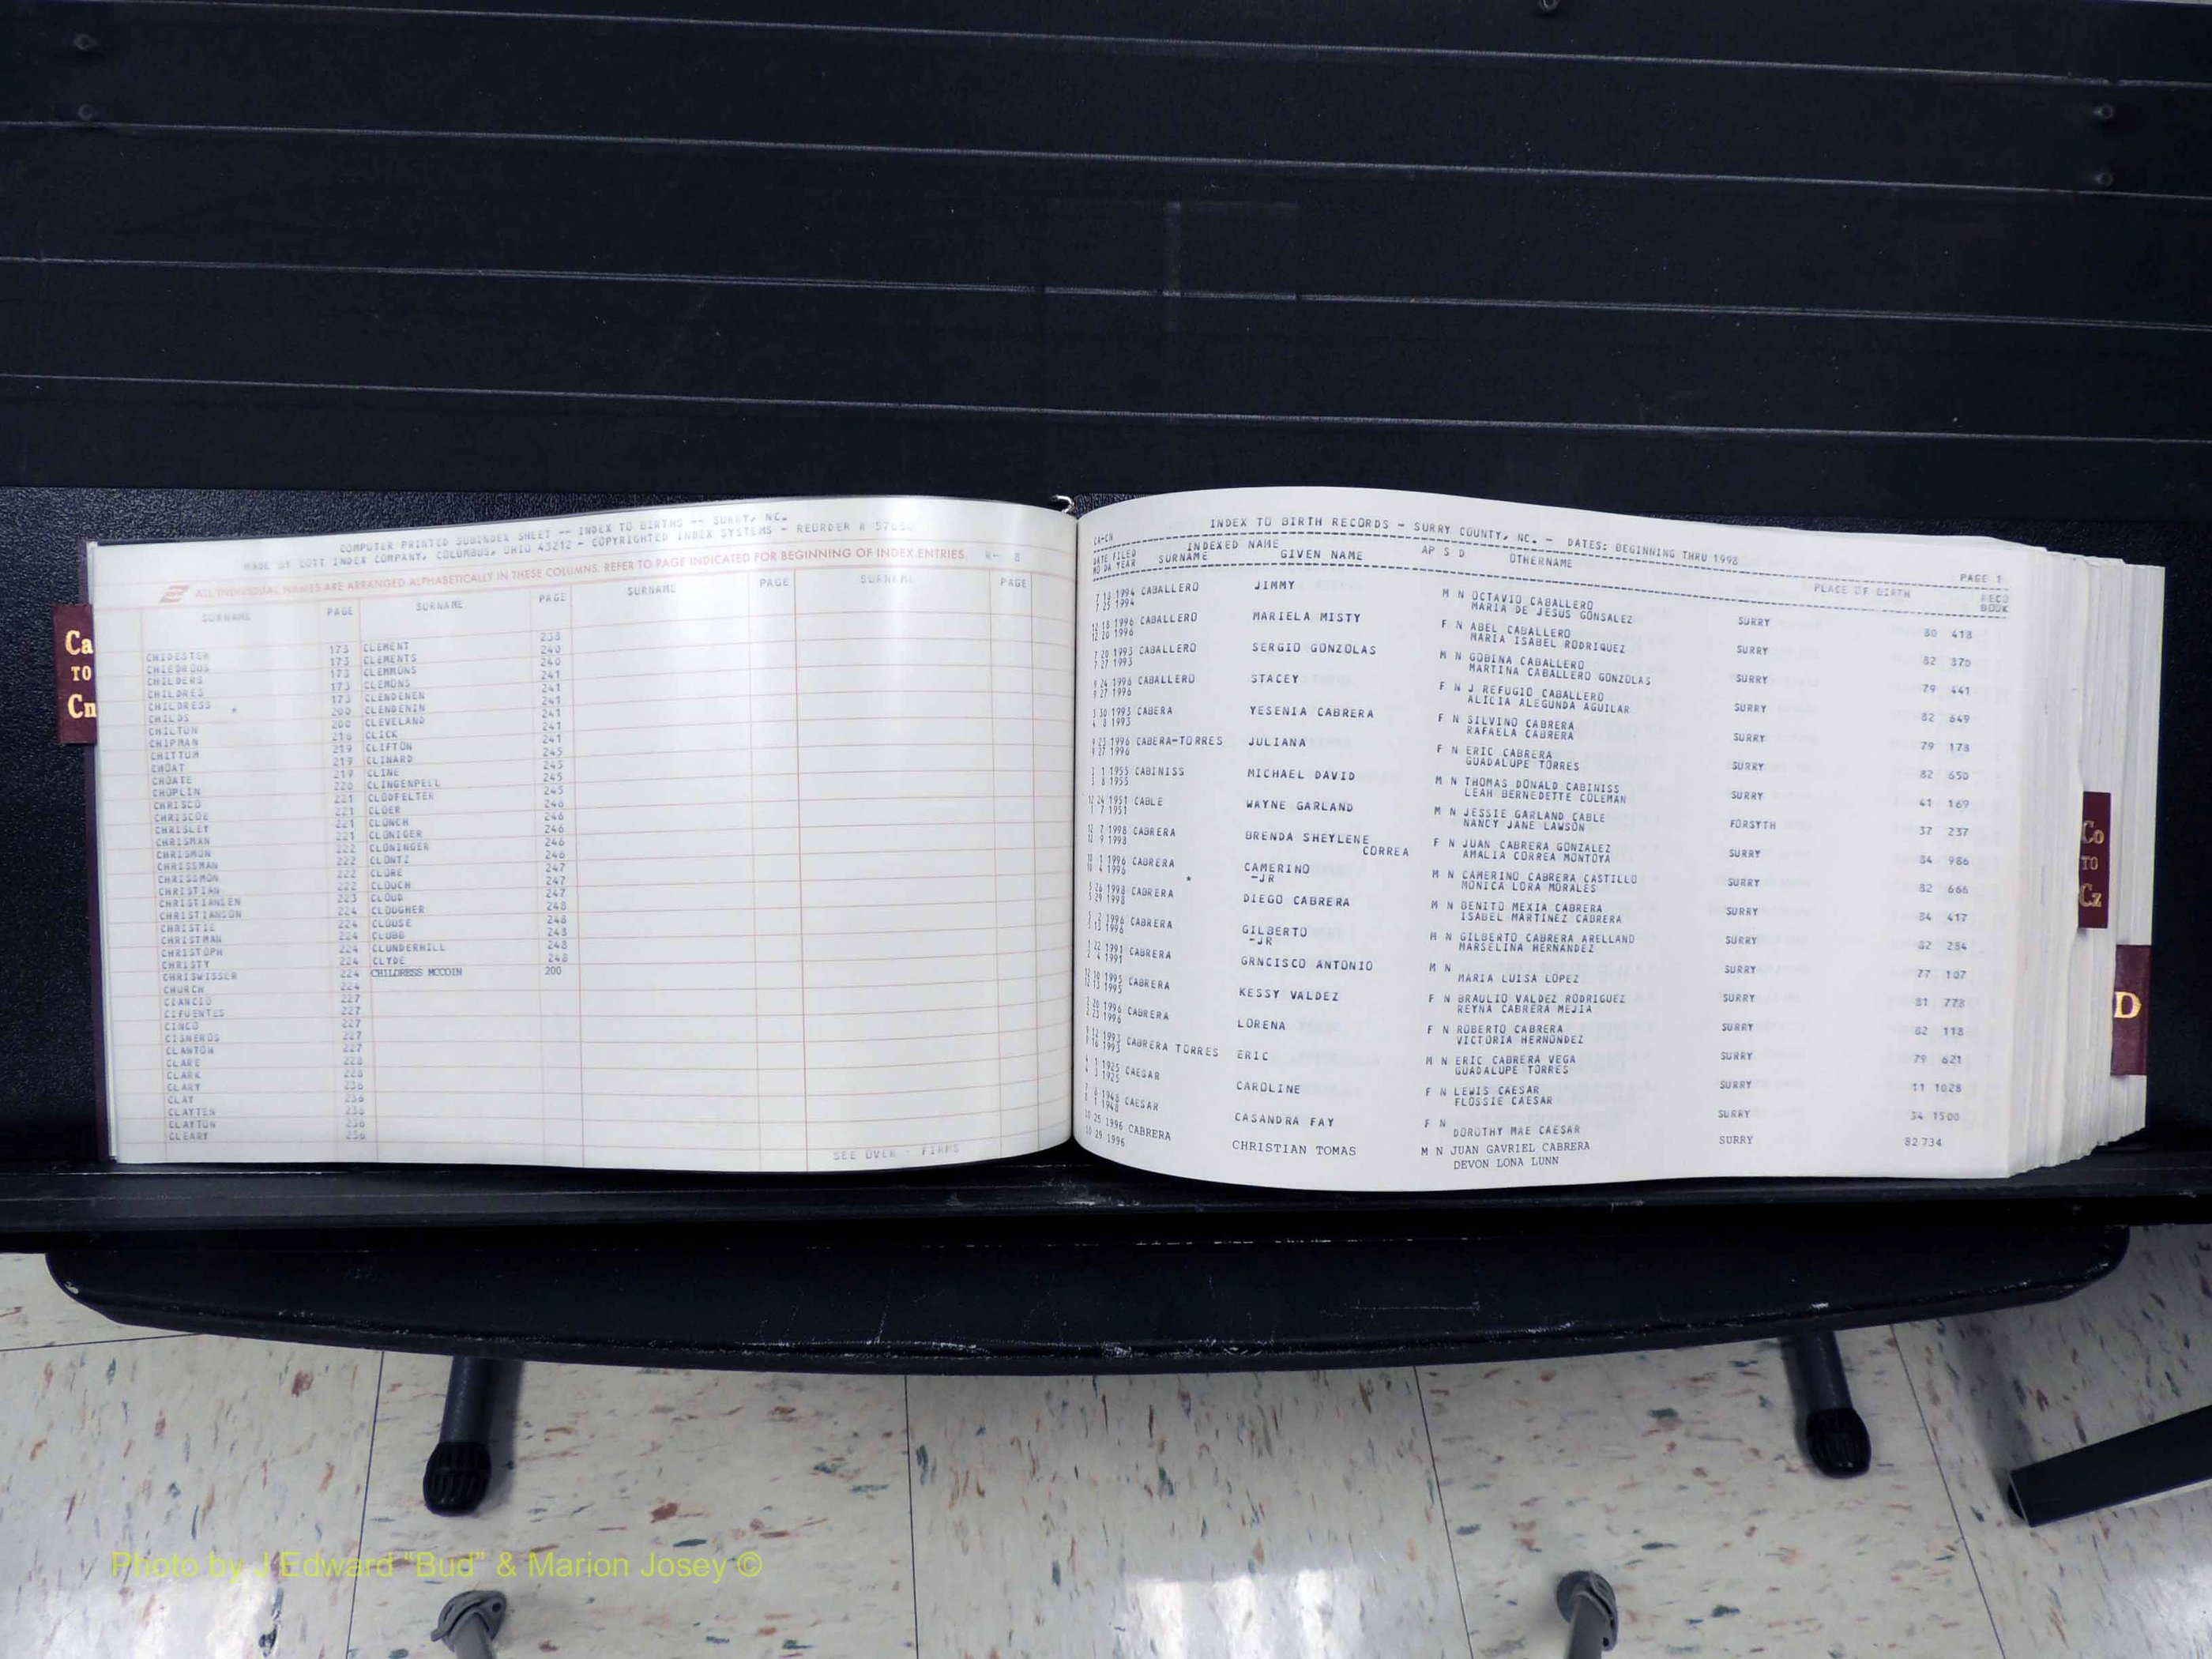 COMPUTER PRINTED SUBINDEX SHEET -- INDEX TO BIRTHS -- SURRY, NC.
MADE BY COTT INDEX COMPANY, COLUMBUS, OHIO 43212 - COPYRIGHTED INDEX SYSTEMS - REORDER #
ALL INDIVIDUAL NAMES ARE ARRANGED ALPHABETICALLY IN THESE COLUMNS. REFER TO PAGE INDICATED FOR BEGINNING OF INDEX ENTRIES.
SURNAME PAGE SURNAME PAGE SURNAME PAGE SURNAME PAGE
CHIDESTER
CHIEDROUS
CHILDERS
CHILDRES
CHILDRESS
CHILDS
CHILTON
CHIPMAN
CHITTUM
CHOAT
CHOATE
CHOPLIN
CHRISCO
CHRISCOE
CHRISLEY
CHRISMAN
CHRISMON
CHRISSMAN
CHRISSMON
CHRISTIAN
CHRISTIANSEN
CHRISTIANSON
CHRISTIE
CHRISTMAN
CHRISTOPH
CHRISTY
CHRISWISSER
CHURCH
CIANCIO
CIFUENTES
CINCO
CISNEROS
CLANTON
CLARE
CLARK
CLARY
CLAY
CLAYTEN
CLAYTON
CLEARY
173
173
173
173
173
200
200
216
219
219
219
220
221
221
221
221
222
222
222
222
223
224
224
224
224
224
224
224
227
227
227
227
227
228
228
236
236
236
236
236
CLEMENT
CLEMENTS
CLEMMONS
CLEMONS
CLENDENEN
CLENDENIN
CLEVELAND
CLICK
CLIFTON
CLINARD
CLINE
CLINGENPELL
CLODFELTER
CLOER
CLONCH
CLONIGER
CLONINGER
CLONTZ
CLORE
CLOUCH
CLOUD
CLOUGHER
CLOUSE
CLUBB
CLUNDERHILL
CLYDE
CHILDRESS MCCOIN
238
240
240
241
241
241
241
241
241
245
245
245
245
246
246
246
246
246
247
247
247
248
248
248
248
248
200
SEE OVER - FIRMS
Ca
TO
Cn
CA-CN
INDEX TO BIRTH RECORDS - SURRY COUNTY, NC. - DATES: BEGINNING THRU 1998
PAGE 1
DATE FILED INDEXED NAME
MO DA YEAR SURNAME GIVEN NAME AP S D OTHERNAME PLACE OF BIRTH BOOK
1994 CABALLERO JIMMY M N OCTAVIO CABALLERO SURRY 80 418
7 25 1994 MARIA DE JESUS GONSALEZ
12 18 1996 CABALLERO MARIELA MISTY F N ABEL CABALLERO SURRY 82 870
12 20 1996 MARIA ISABEL RODRIQUEZ
7 20 1993 CABALLERO SERGIO GONZOLAS M N GOBINA CABALLERO SURRY 79 441
7 27 1993 MARTINA CABALLERO GONZOLAS
9 24 1996 CABALLERO STACEY F N J REFUGIO CABALLERO SURRY 82 649
9 27 1996 ALICIA ALEGUNDA AGUILAR
3 30 1993 CABERA YESENIA CABRERA F N SILVINO CABRERA SURRY 79 178
4 8 1993 RAFAELA CABRERA
9 23 1996 CABERA-TORRES JULIANA F N ERIC CABRERA SURRY 82 650
9 27 1996 GUADALUPE TORRES
1955 CABINISS MICHAEL DAVID M N THOMAS DONALD CABINISS SURRY 41 169
1955 LEAH BERNEDETTE COLEMAN
12 24 1951 CABLE WAYNE GARLAND M N JESSIE GARLAND CABLE FORSYTH 37 237
1 7 1951 NANCY JANE LAWSON
12 7 1998 CABRERA BRENDA SHEYLENE F N JUAN CABRERA GONZALEZ SURRY 84 986
12 9 1998 CORREA AMALIA CORREA MONTOYA
10 1 1996 CABRERA CAMERINO M N CAMERINO CABRERA CASTILLO SURRY 82 666
1996 -JR MONICA LORA MORALES
5 26 1998 CABRERA DIEGO CABRERA M N BENITO MEXIA CABRERA SURRY 84 417
5 29 1998 ISABEL MARTINEZ CABRERA
5 2 1996 CABRERA GILBERTO M N GILBERTO CABRERA ARELLANO SURRY 82 284
5 13 1996 -JR MARSELINA HERNANDEZ
1 22 1991 CABRERA GRNCISCO ANTONIO M N SURRY 77 107
2 4 1991 MARIA LUISA LOPEZ
12 10 1995 CABRERA KESSY VALDEZ F N BRAULIO VALDEZ RODRIGUEZ SURRY 81 778
12 13 1995 REYNA CABRERA MEJIA
2 20 1996 CABRERA LORENA F N ROBERTO CABRERA SURRY 82 118
2 23 1996 VICTORIA HERNONDEZ
9 12 1993 CABRERA TORRES ERIC M N ERIC CABRERA VEGA SURRY 79 621
9 16 1993 GUADALUPE TORRES
4 1 1925 CAESAR CAROLINE F N LEWIS CAESAR SURRY 11 1028
4 3 1925 FLOSSIE CAESAR
1948 CAESAR CASANDRA FAY F N SURRY 34 1500
1948 DOROTHY MAE CAESAR
10 25 1996 CABRERA CHRISTIAN TOMAS M N JUAN GAVRIEL CABRERA SURRY 82 734
10 29 1996 DEVON LONA LUNN
Co
TO
Cz
D
Photo by J Edward “Bud” & Marion Josey ©